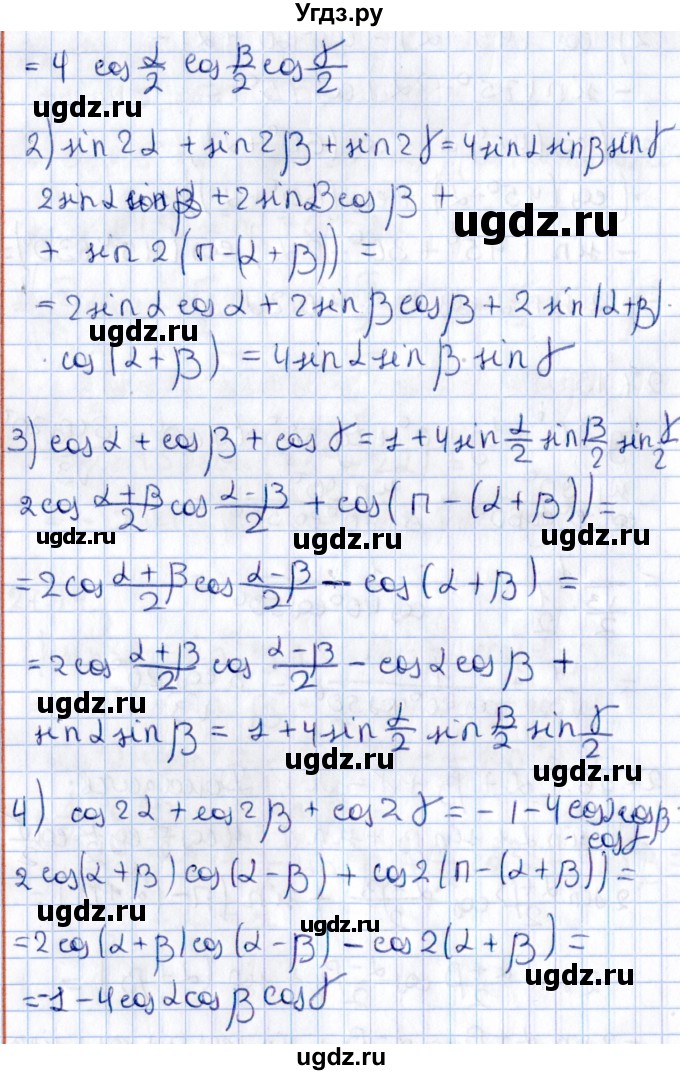 Угдз.ру
= 4 cos α/2 cos β/2 cos γ/2
ugdz.ru
ugdz.ru
2) sin 2α + sin 2β + sin 2γ = 4 sin α sin β sin γ
2 sin α + 2 sin β cos β +
ugdz.ru
+ sin 2 (π - (α + β)) =
= 2 sin α cos α + 2 sin β cos β + 2 sin (α + β) ·
ugdz.ru
cos (α + β) = 4 sin α sin β · sin γ
ugdz.ru
3) cos α + cos β + cos γ = 1 + 4 sin α/2 sin β/2 sin γ/2
2 cos (α + β)/2 cos (α - β)/2 + cos (π - (α + β)) =
ugdz.ru
ugdz.ru
ugdz.ru
= 2 cos (α + β)/2 cos (α - β)/2 - cos (α + β) =
= 2 cos (α + β)/2 cos (α - β)/2 - cos α cos β +
ugdz.ru
sin α sin β = 1 + 4 sin α/2 sin β/2 sin γ/2
ugdz.ru
ugdz.ru
4) cos 2α + cos 2β + cos 2γ = - 1 - 4 cos α cos β ·
· cos γ
2 cos (α + β) cos (α - β) + cos 2 (π - (α + β)) =
ugdz.ru
ugdz.ru
= 2 cos (α + β) cos (α - β) - cos 2 (α + β) =
ugdz.ru
= -1 - 4 cos α cos β cos γ
ugdz.ru